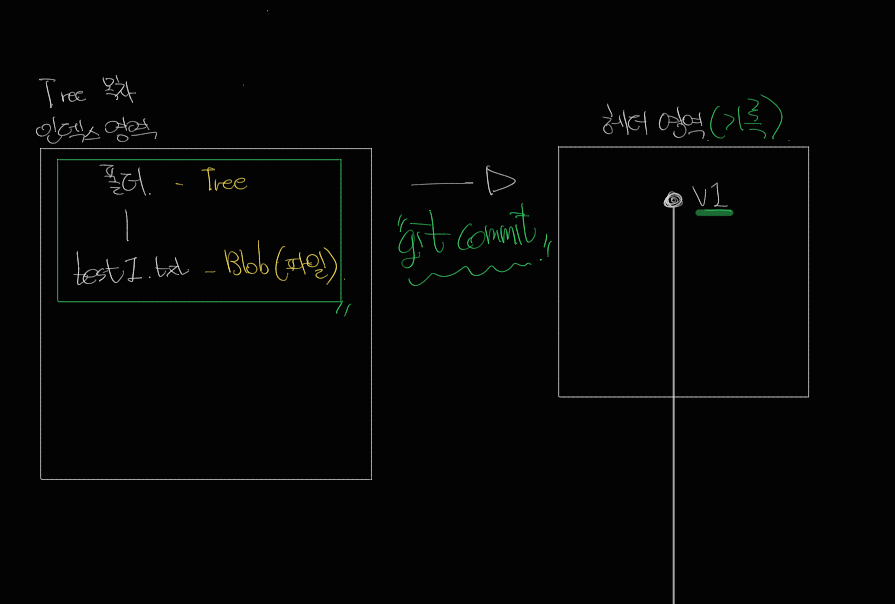 Tree 목차
인덱스 영역
폴더 - Tree
test1.txt - Blob(파일)
"git commit"
헤더 영역(기록)
V1